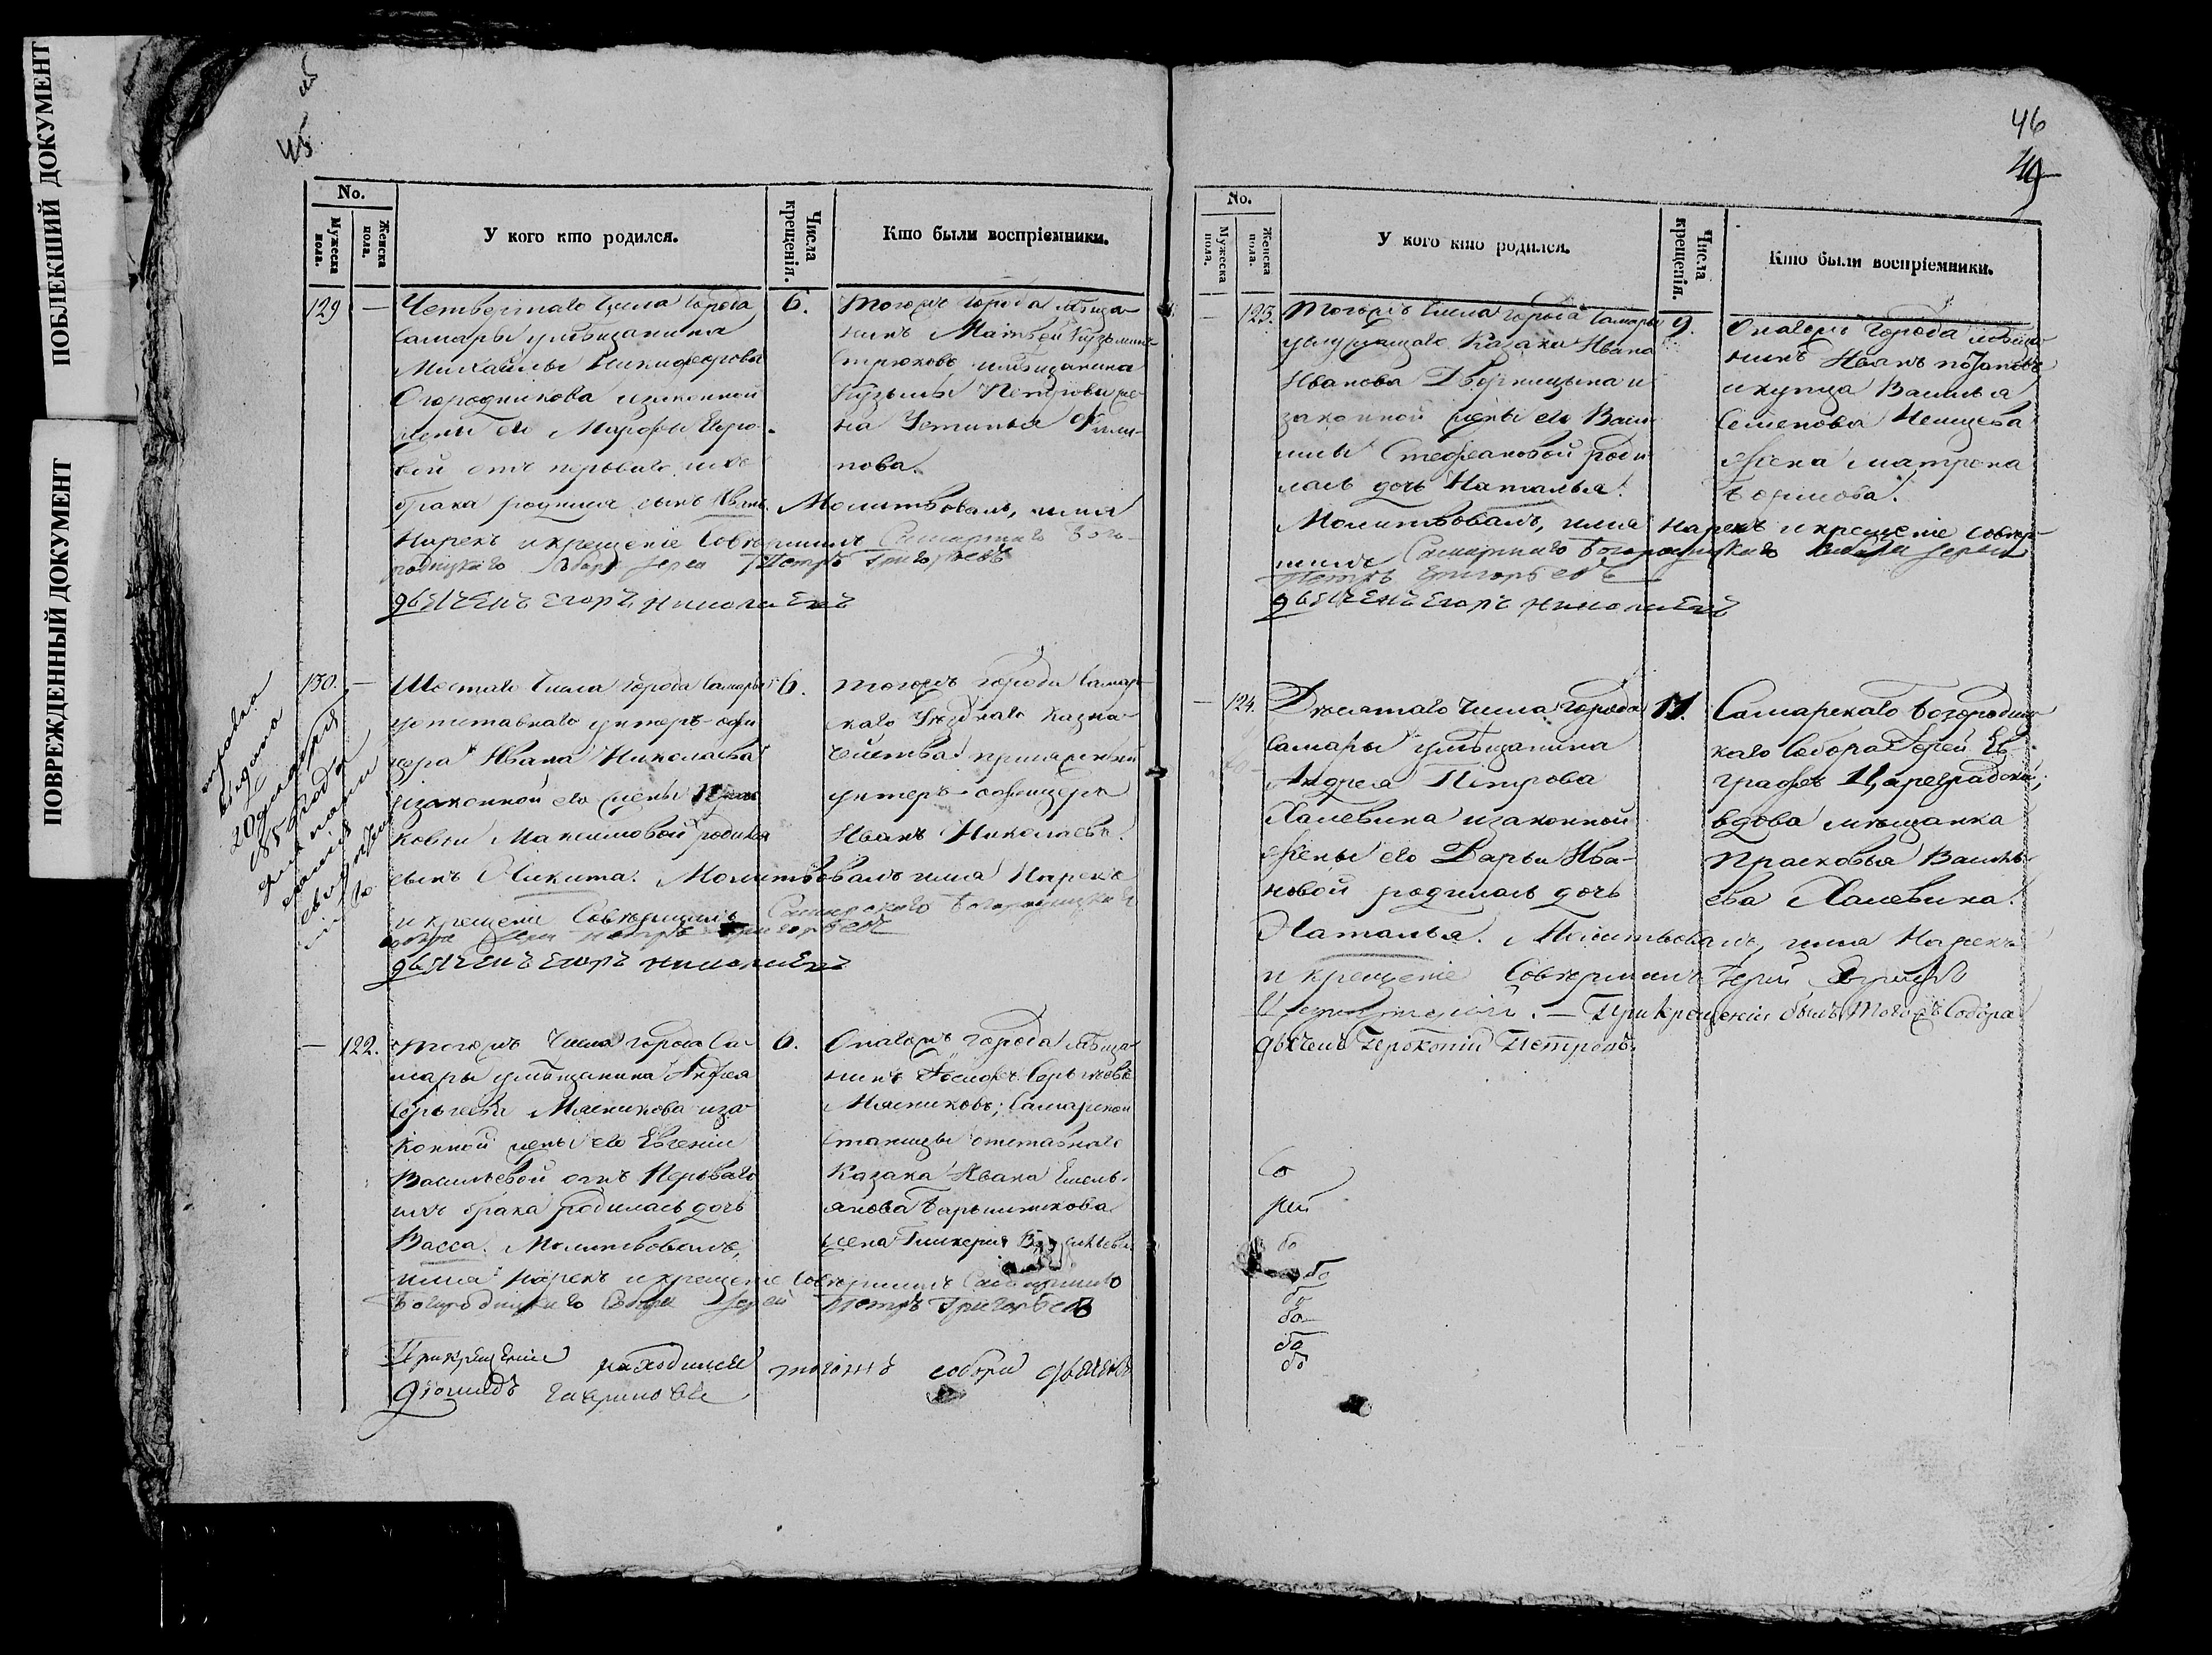 ПОБЛЕКШИЙ ДОКУМЕНТ
ПОВРЕЖДЕННЫЙ ДОКУМЕНТ
45
No.
Мужеска пола.
Женска пола.
У кого кто родился.
Числа крещенія.
Кто были воспріемники.
129 — Четвертаго числа города
Самары у мѣщанина
Михайлы Никифорова
Огородникова и законной
жены его Марфы
вой отъ перваго ихъ
брака родился сынъ Иванъ. Молитвовалъ, имя
нарекъ и крещеніе совершилъ Самарскаго Бого-
родицкаго Собора Іерей Петръ Григорьевъ
дьячекъ Егоръ Николаевъ
6. Тогожъ города мѣща-
нинъ Матвей Кузьминъ
Стрюковъ и мѣщанина
Кузьмы Петрова же-
на Устинья Филип-
пова.
130. — Шестаго числа города Самары
у отставнаго унтеръ-офи-
цера Ивана Николаева
и законной его жены Прас-
ковьи Максимовой родился
сынъ Никита. Молитвовалъ имя нарекъ
и крещеніе совершилъ Самарскаго Богородицкаго
Собора Іерей Петръ Григорьевъ
дьячекъ Егоръ Николаевъ
6. тогожъ города Самар-
скаго Уѣзднаго Казна-
чейства присяжный
унтеръ-офицеръ
Иванъ Николаевъ.
справка
выдана
20 февраля
185 года
— 122. Тогожъ числа города Са-
мары у мѣщанина Андрея
Сергѣева Мясникова и за-
конной жены его Евгеніи
Васильевой отъ перваго
ихъ брака родилась дочь
Васса. Молитвовалъ,
имя нарекъ и крещеніе совершилъ Самарскаго
Богородицкаго Собора Іерей Петръ Григорьевъ
При крещеніи находился тогожъ собора дьячекъ
Діомидъ Гавриловъ
6. Онагожъ города мѣща-
нинъ Сергѣевъ
Мясниковъ; Самарской
станицы отставнаго
Казака Ивана Емель-
янова Барышникова
жена Гликерія Васильева
46
No.
Мужеска пола.
Женска пола.
У кого кто родился.
Числа крещенія.
Кто были воспріемники.
— 123. Тогожъ числа города Самары
у служащаго Казака Ивана
Иванова Дворницына и
законной жены его Васи-
лисы Стефановой роди-
лась дочь Наталья.
Молитвовалъ, имя нарекъ и крещеніе совер-
шилъ Самарскаго Богородицкаго Собора Іерей
Петръ Григорьевъ
дьячекъ Егоръ Николаевъ
9. Онагожъ города мѣща-
нинъ Иванъ Потаповъ
и купца Василья
Семенова
жена Матрена
— 124. Девятаго числа города
Самары у мѣщанина
Андрея Петрова
Халевина и законной
жены его Дарьи Ива-
новой родилась дочь
Наталья. Молитвовалъ, имя нарекъ
и крещеніе совершилъ Іерей Евграфъ
Цареградскій. — При крещеніи былъ тогожъ Собора
дьячекъ Прокопій Петровъ.
11. Самарскаго Богородиц-
каго Собора Іерей Ев-
графъ Цареградскій;
вдова мѣщанка
Прасковья Василь-
ева Халевина.